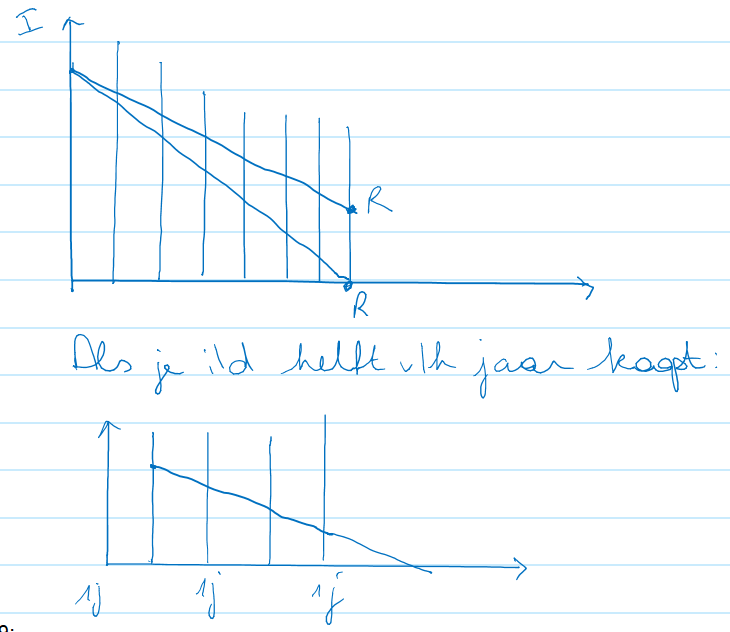 I
R
R
Als je i/d helft v/h jaar koopt:
1j 1j 1j